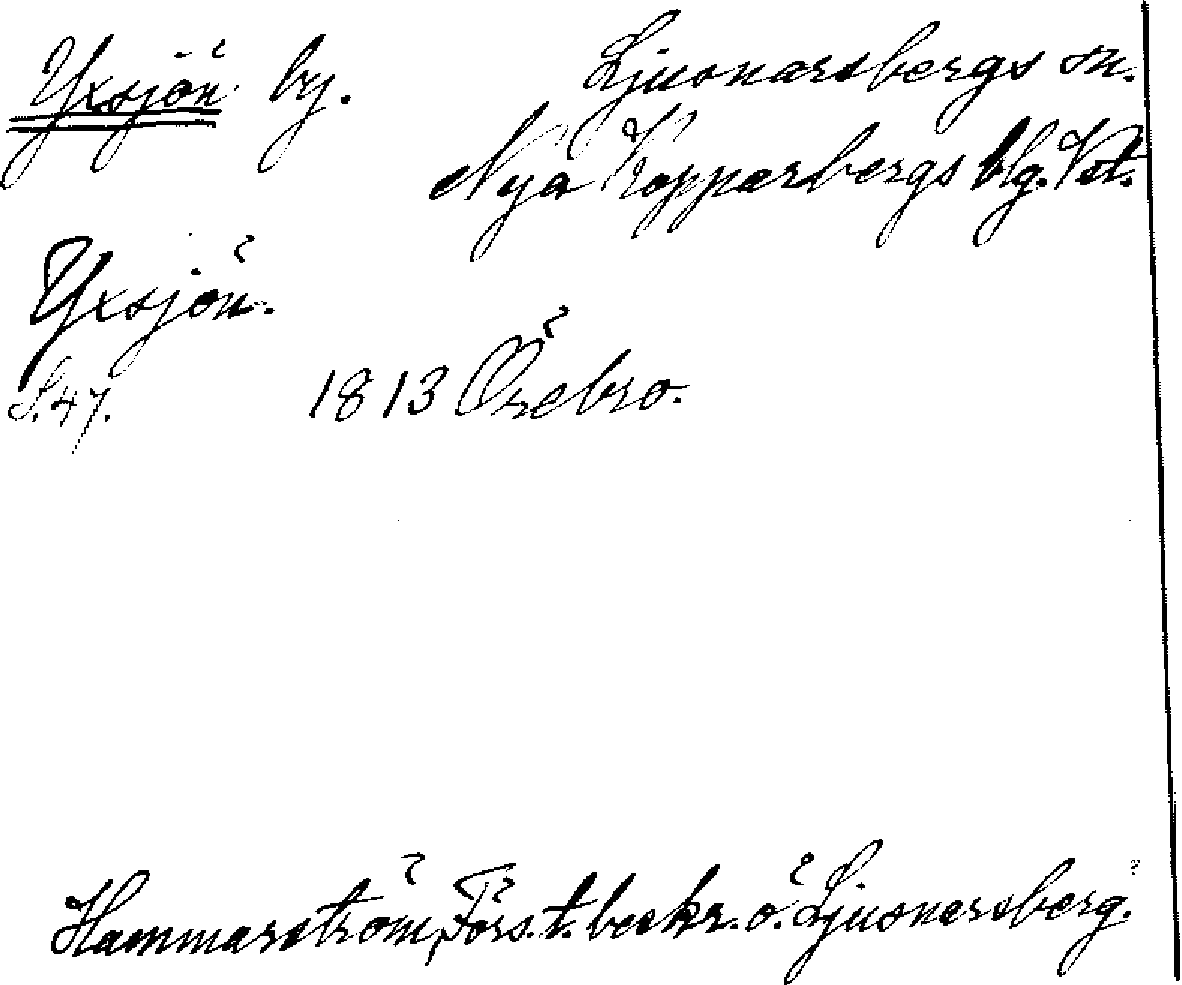 Yxsjön by. Ljusnarsbergs sn.
Nya Kopparbergs blg. Vstm.
Yxsjön.
S. 47. 1813 Örebro.
Hammarström, Förs. t. beskr. ö. Ljusnarsberg.